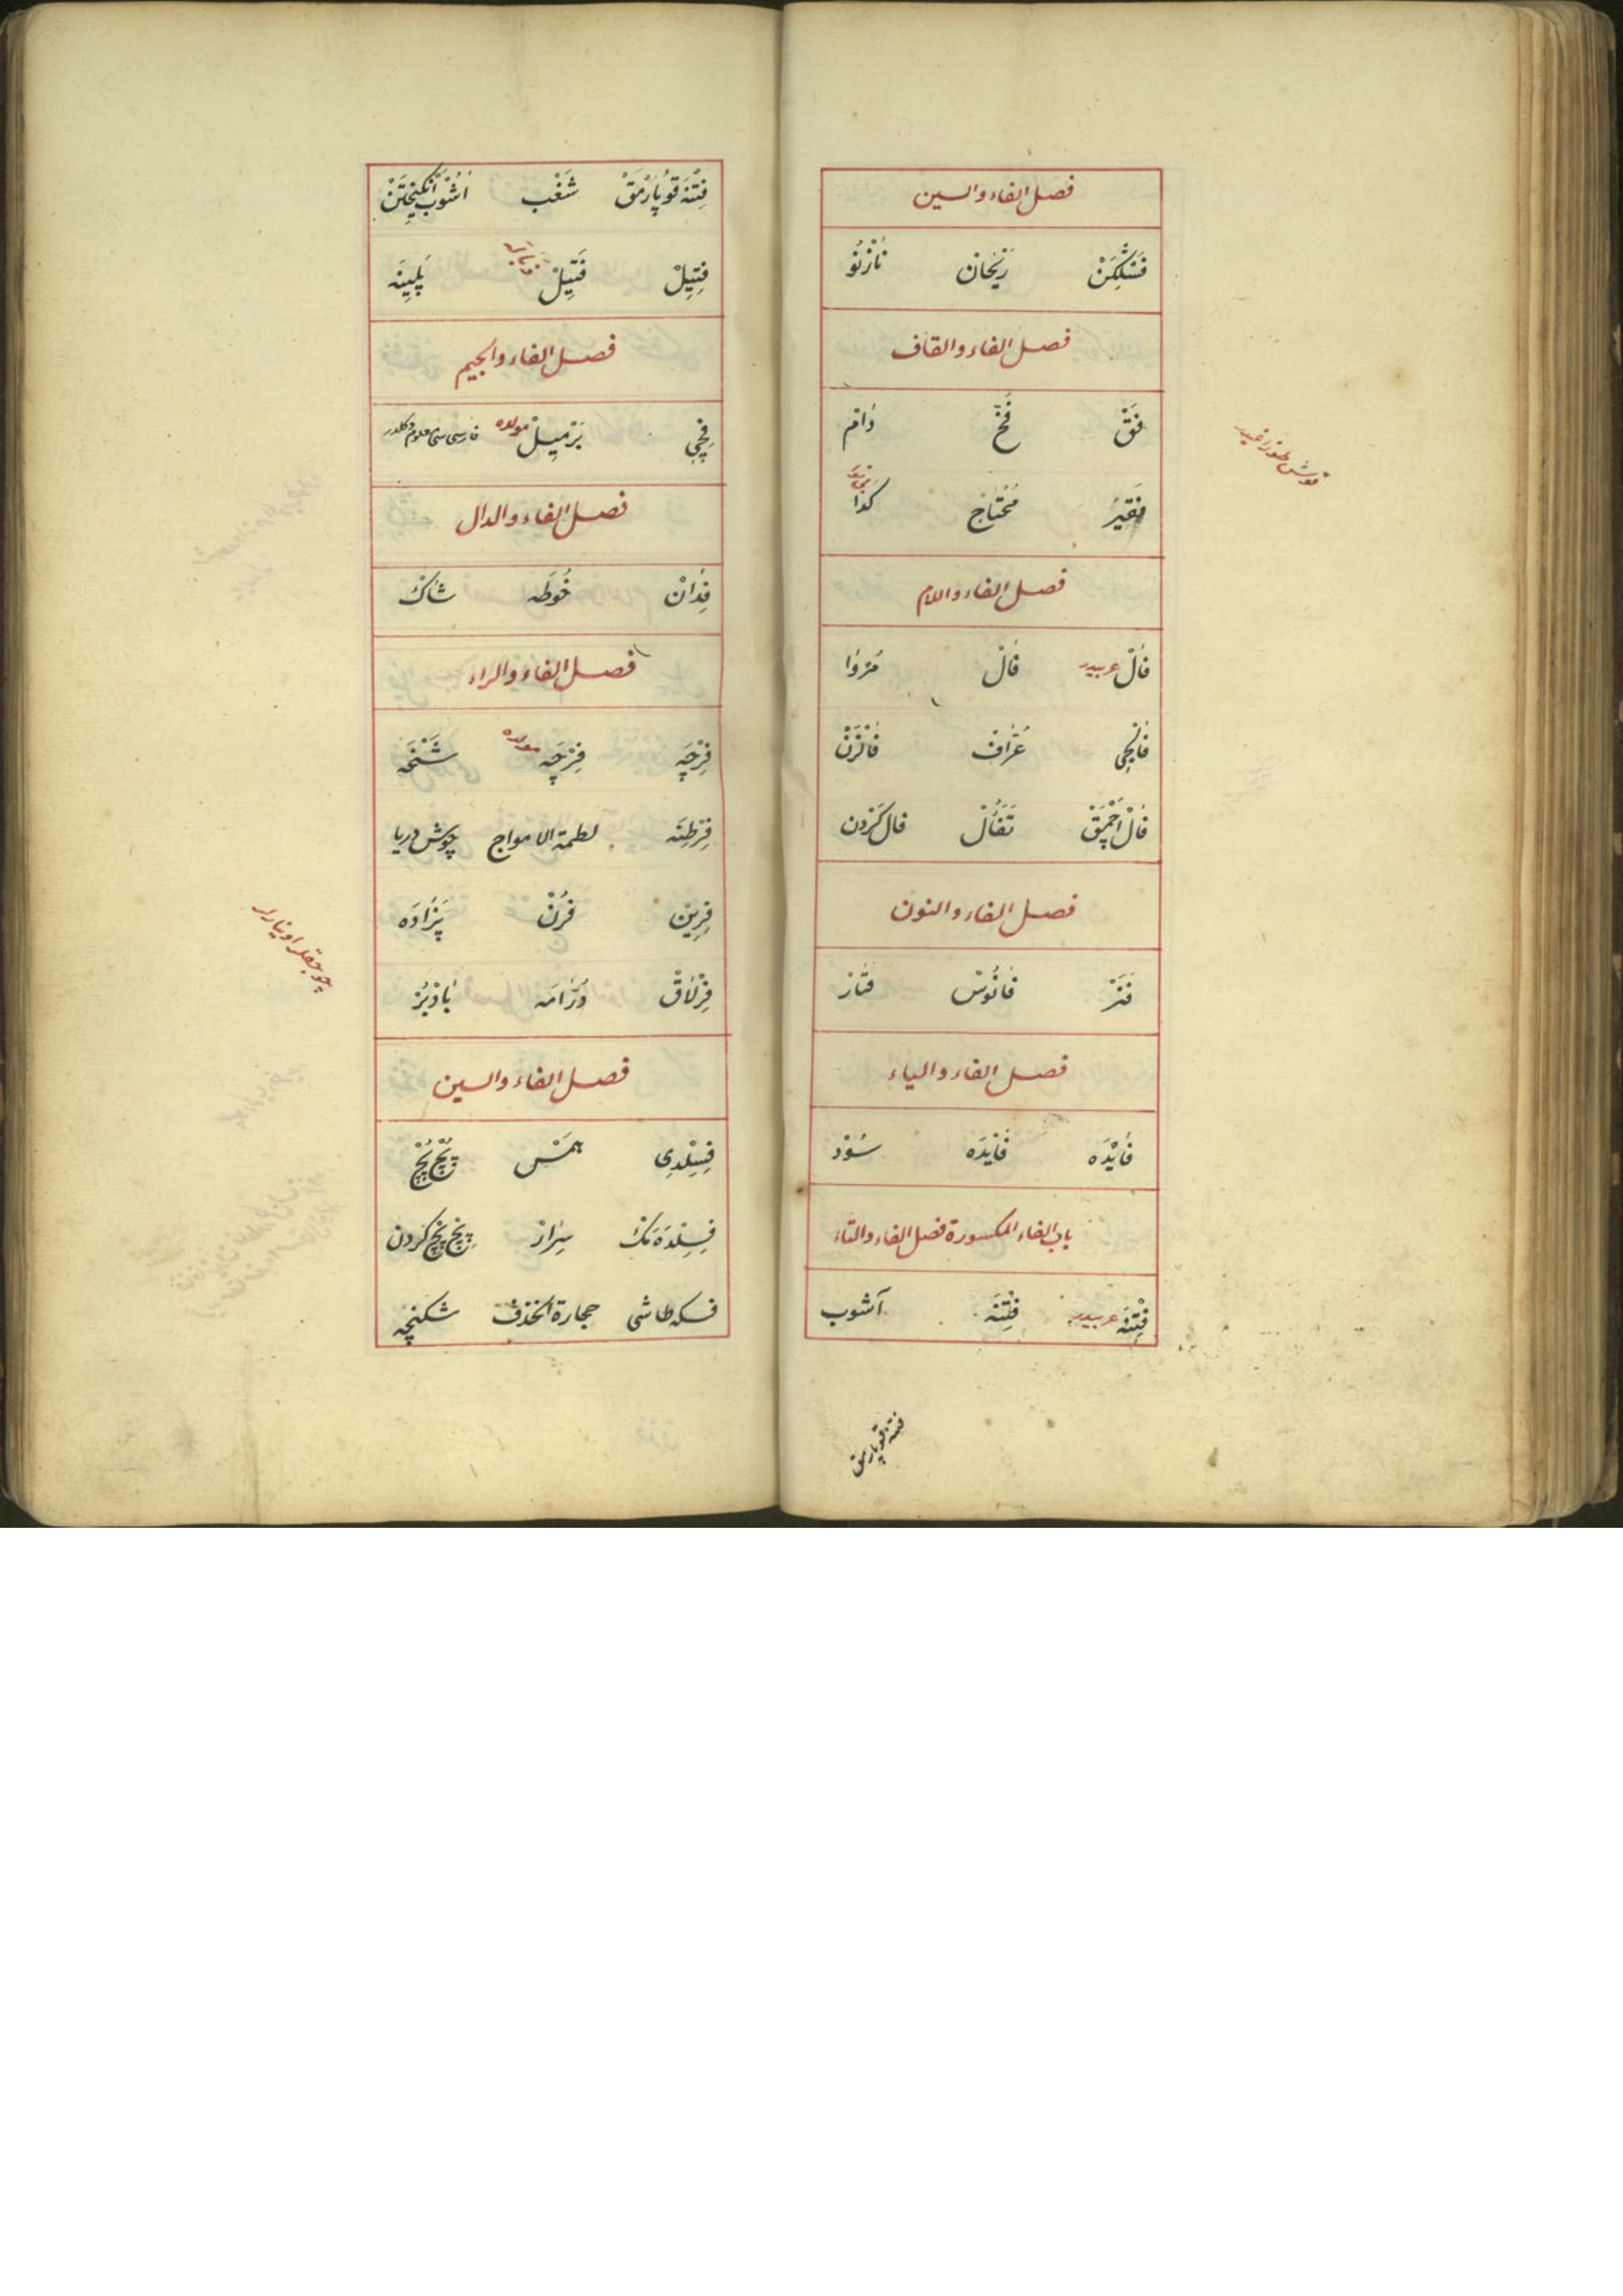 فصل الفاء والسين
فَسْلَكَنْ رَيْحَان نَازْبُو
فصل الفاء والقاف
فَقْ فَخّ دَامْ
فَقِيرْ مُحْتَاجْ كَدَا
قوش طوزاغيدر
فصل الفاء واللام
فَالْ عربيدر فَالْ مُرْوَا
فَالْجِى عَرَّافْ فَالْزَنْ
فَالْ اَچْمَقْ تَفَأُّلْ فال كَرْدن
فصل الفاء والنون
فَنَرْ فَانُوسْ فنار
فصل الفاء والياء
فَايْدَه فَايْدَه سُودْ
باب الفاء المكسورة فصل الفاء والتاء
فِتْنَه عربيدر فِتْنَه آشوب
فتنه قوپارمق
فِتْنَه قُوپَارْمَقْ شَغْب اَشُوبْ اَنْكِيخْتَنْ
فِتِيلْ فَتِيلْ پَلِيتَه
فصل الفاء والجيم
فِچِى بَرْمِيلْ مولده فارسى سى معلوم دكلدر
فصل الفاء والدال
فِدَانْ خُوطَه شاك
فصل الفاء والراء
فِرْچَه فِرْچَه مولده
فِرْطِنَه لطمة الامواج جوش دريا
فِرِين فُرُنْ پَزَادَه
فِرْلَاقْ دَوَّامَه بَادْبَرْ
چوجقلر اوينارلر
فصل الفاء والسين
فِسِلْدِى هَمْس پُچْ پُچْ
فِسِلْدَه مَك سِرَار پچ پچ كردن
فسكه طاشى حجارة الخذف شكنچه